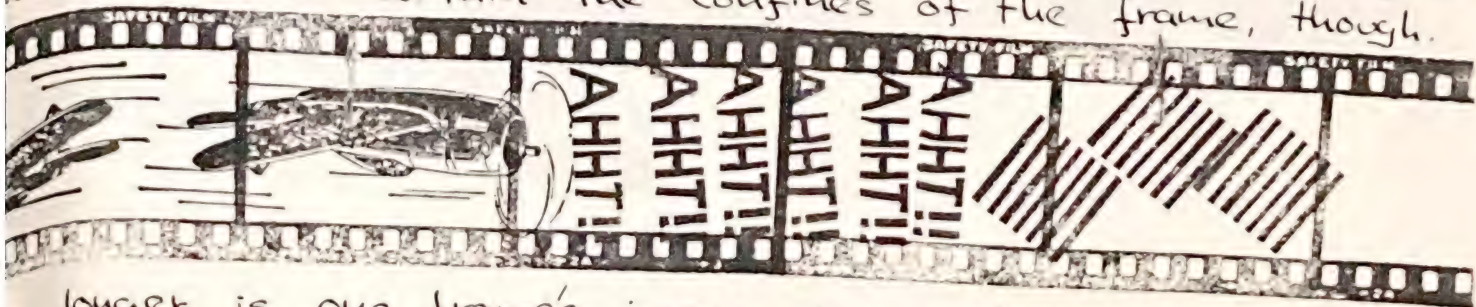 the confines of the frame, though.
SAFETY FILM SAFETY FILM SAFETY FILM SAFETY FILM
AHHT!
AHHT!!
AHHT!!
AHHT!
AHHT!!
AHHT!!
2A
longer is one